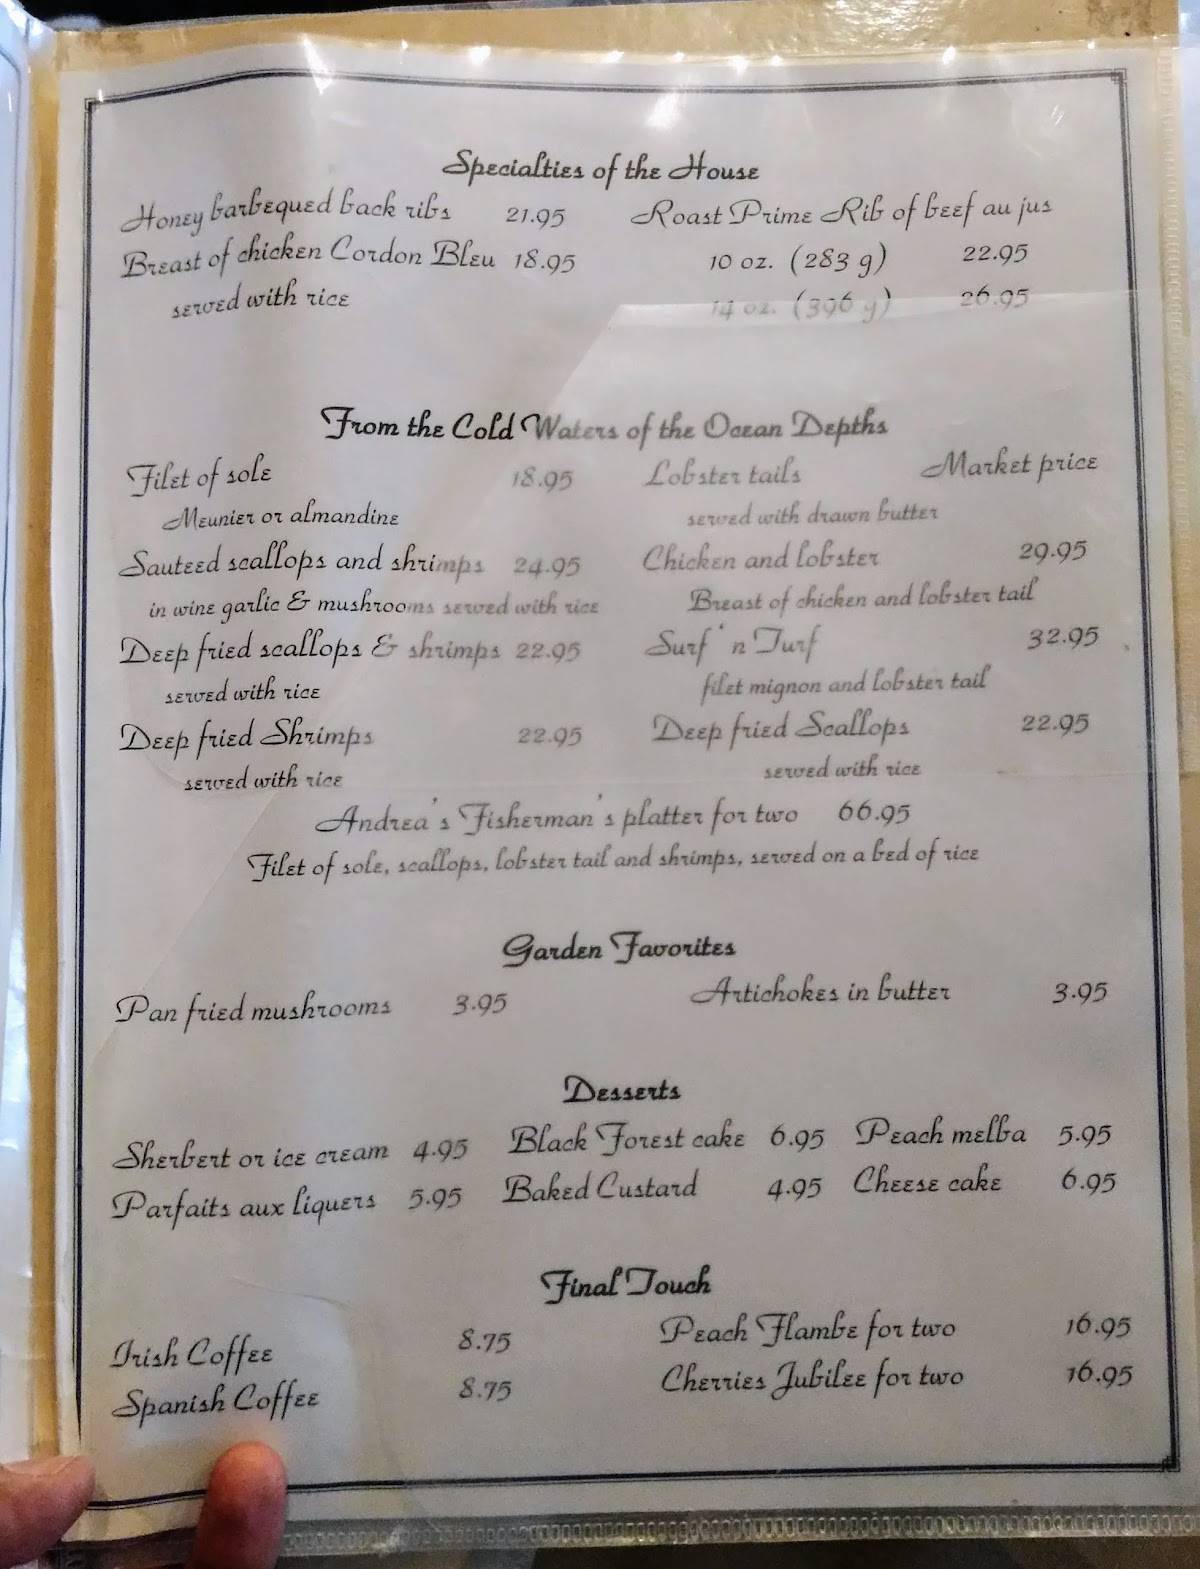 Specialties of the House
Honey barbequed back ribs 21.95
Breast of chicken Cordon Bleu 18.95
served with rice
Roast Prime Rib of beef au jus
10 oz. (283 g) 22.95
14 oz. (396 g) 26.95
From the Cold Waters of the Ocean Depths
Filet of sole 18.95
Meunier or almandine
Sauteed scallops and shrimps 24.95
in wine garlic & mushrooms served with rice
Deep fried scallops & shrimps 22.95
served with rice
Deep fried Shrimps 22.95
served with rice
Lobster tails Market price
served with drawn butter
Chicken and lobster 29.95
Breast of chicken and lobster tail
Surf 'n Turf 32.95
filet mignon and lobster tail
Deep fried Scallops 22.95
served with rice
Andrea's Fisherman's platter for two 66.95
Filet of sole, scallops, lobster tail and shrimps, served on a bed of rice
Garden Favorites
Pan fried mushrooms 3.95
Artichokes in butter 3.95
Desserts
Sherbert or ice cream 4.95
Black Forest cake 6.95
Peach melba 5.95
Parfaits aux liquers 5.95
Baked Custard 4.95
Cheese cake 6.95
Final Touch
Irish Coffee 8.75
Spanish Coffee 8.75
Peach Flambe for two 16.95
Cherries Jubilee for two 16.95